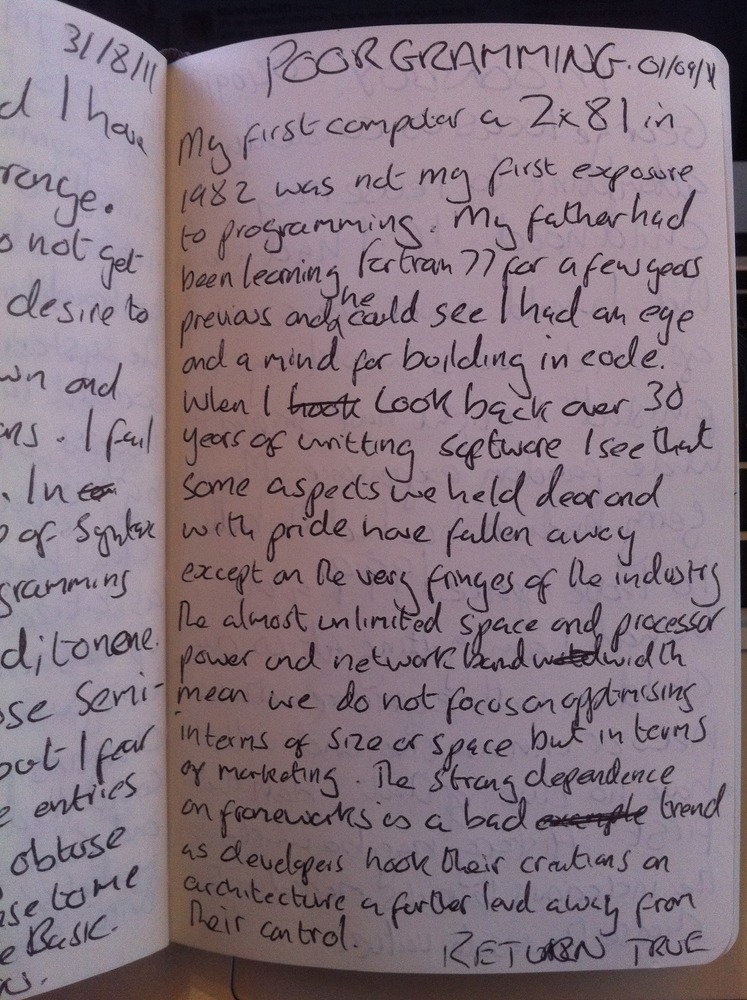 31/8/11
d I have
range.
o not get
desire to
wn and
ns. I fail
. In
of Syntax
gramming
d; it one.
ose Semi-
but I fear
e entries
obtuse
use to me
e Basic.
POOR GRAMMING. 01/09/11
My first computer a Zx81 in
1982 was not my first exposure
to programming. My father had
been learning fortran 77 for a few years
previous and he could see I had an eye
and a mind for building in code.
When I hook Look back over 30
years of writting software I see that
some aspects we held dear and
with pride have fallen away
except on the very fringes of the industry
The almost unlimited space and processor
power and network bandwidth
mean we do not focus on opptimissing
interms of size or space but in terms
of marketing. The strong dependence
on frameworks is a bad example trend
as developers hook their creations on
architecture a further level away from
their control. RETURN TRUE